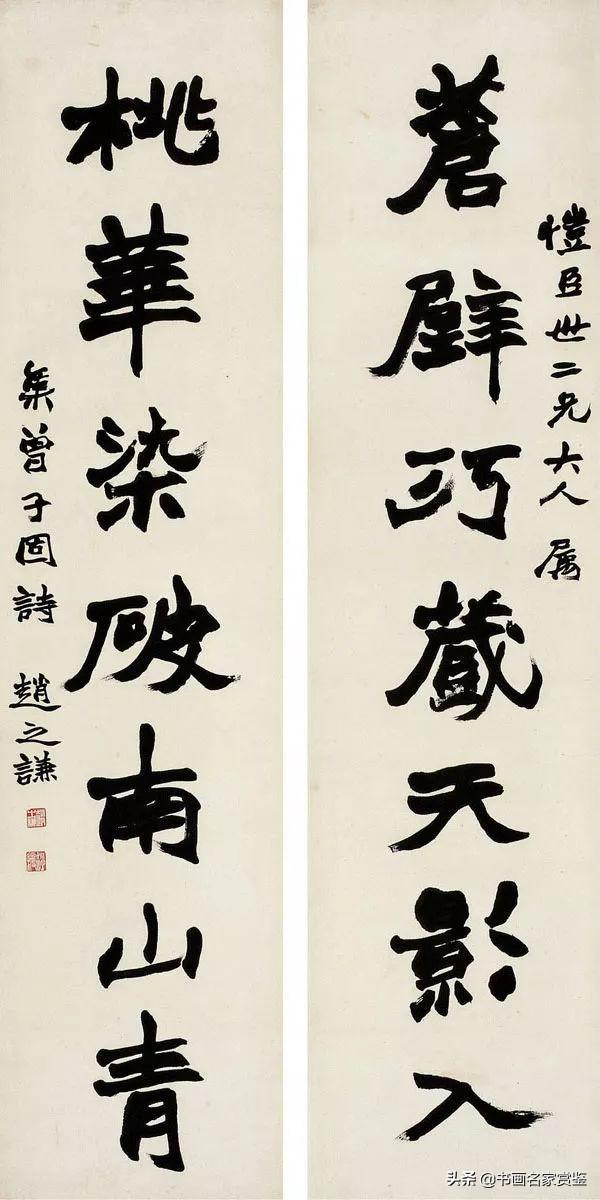 愷臣世二兄大人屬
蒼壁巧藏天影入
桃華染破南山青
集曾子固詩 趙之謙
头条 @书画名家赏鉴